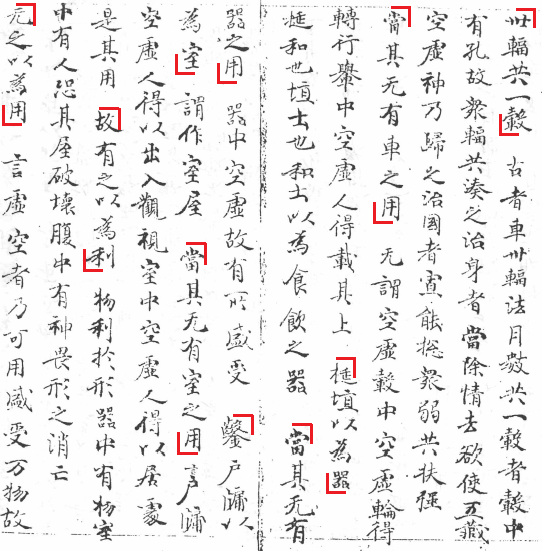 卅輻共一轂 古者車卅輻法月數共一轂者轂中
有孔故衆輻共湊之治身者當除情去欲使五藏
空虛神乃歸之治國者寡能揔衆弱共扶強
當其无有車之用 无謂空虛轂中空虛輪得
轉行轝中空虛人得載其上 埏埴以為器
埏和也埴土也和土以為食飲之器 當其无有
器之用 器中空虛故有所盛受 鑿戶牖以
為室 謂作室屋 當其无有室之用 言戶牖
空虛人得以出入觀視室中空虛人得以居處
是其用 故有之以為利 物利於形器中有物室
中有人恐其屋破壞腹中有神畏形之消亡
无之以為用 言虛空者乃可用盛受万物故